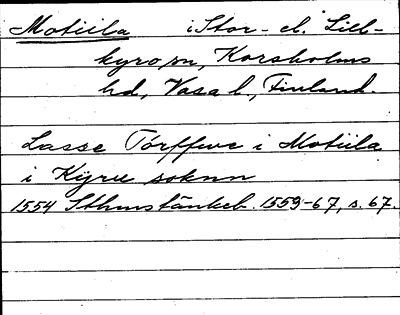 Motiila i Stor- el. Lill-
kyro sn, Korsholms
hd, Vasa l, Finland.
Lasse Törffwe i Motiila
i Kyru soknn
1554 Sthms tänkeb. 1553-67, s. 67.